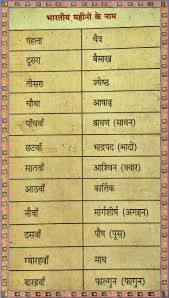 भारतीय महीनों के नाम
पहला चैत्र
दूसरा बैसाख
तीसरा ज्येष्ठ
चौथा आषाढ़
पाँचवाँ श्रावण (सावन)
छटवाँ भाद्रपद (भादो)
सातवाँ आश्विन (क्वार)
आठवाँ कार्तिक
नौवाँ मार्गशीर्ष (अगहन)
दसवाँ पौष (पूस)
ग्यारहवाँ माघ
बारहवाँ फाल्गुन (फागुन)